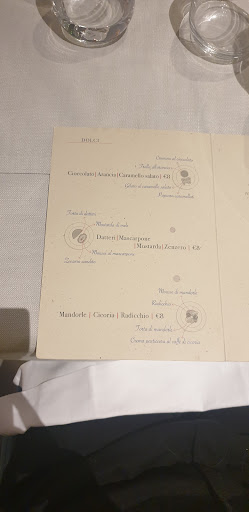 DOLCI
Cremoso al cioccolato
Cioccolato | Arancia | Caramello salato | €8
Gelato al caramello salato
Torta di datteri
Mostarda di mele
Datteri | Mascarpone
| Mostarda | Zenzero | €8
Mousse al mascarpone
Zenzero candito
Mousse di mandorle
Radicchio
Mandorle | Cicoria | Radicchio | €8
Torta di mandorle
Crema pasticcera al caffè di cicoria